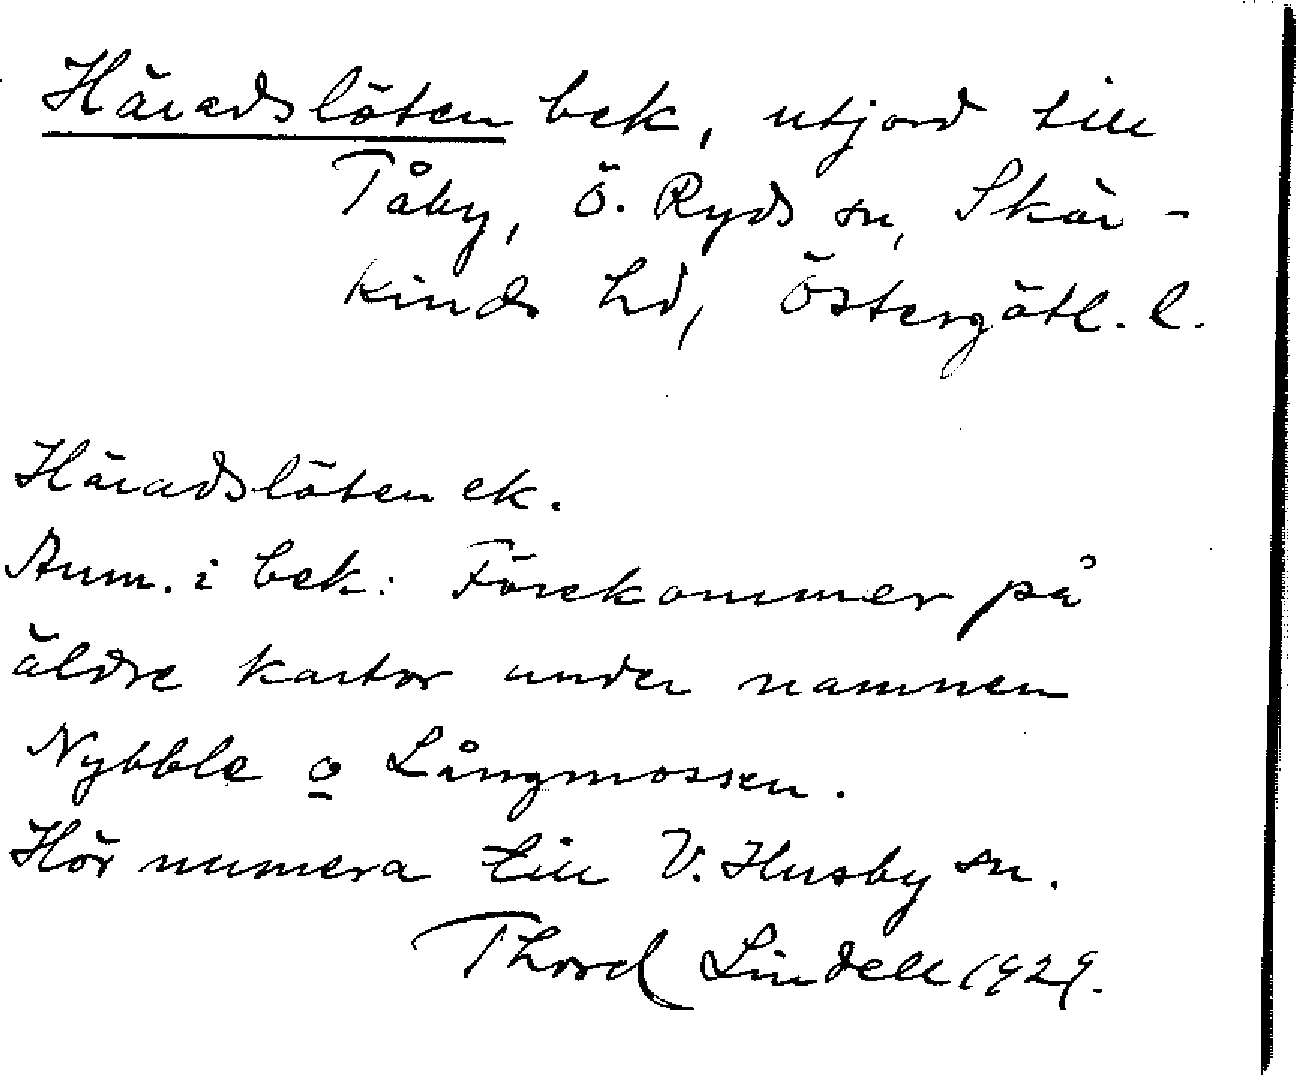 Häradslöten bek, utjord till
Tåby, Ö. Ryds sn, Skär-
kinds hd, Östergötl. l.
Häradslöten ek.
Anm. i bek: Förekommer på
äldre kartor under namnen
Nybble o Långmossen.
Hör numera till V. Husby sn.
Thord Lindell 1929.